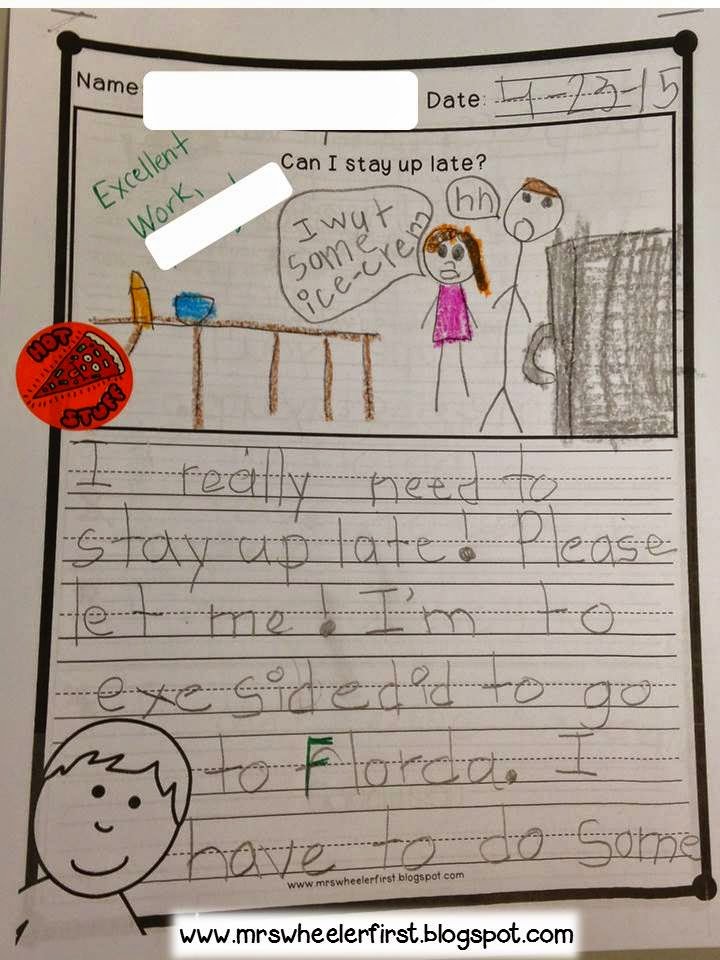 Name
Date: 4-23-15
Excellent
Work,
Can I stay up late?
I wut
some
ice-crem
hh
HOT
STUFF
I really need to
stay up late! Please
let me! I'm to
exe sidedid to go
to Florda. I
have to do some
www.mrswheelerfirst.blogspot.com
www.mrswheelerfirst.blogspot.com